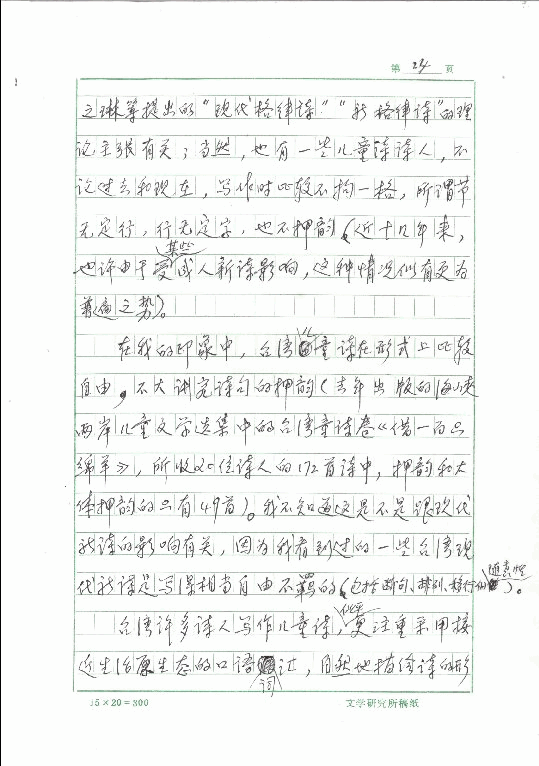 第 24 页
之琳等提出的“现代格律诗”“新格律诗”的理
论主张有关；当然，也有一些儿童诗诗人，不
论过去和现在，写作时比较不拘一格，所谓节
无定行，行无定字，也不押韵（近十几年来，
也许由于受某些成人新诗影响，这种情况似有更为
普遍之势）。
在我的印象中，台湾儿童诗在形式上比较
自由，不大讲究诗句的押韵（去年出版的海峡
两岸儿童文学选集中的台湾童诗卷《借一百只
绵羊》，所收26位诗人的172首诗中，押韵和大
体押韵的只有49首）。我不知道这是不是跟现代
新诗的影响有关，因为我看到过的一些台湾现
代新诗是写得相当自由不羁的（包括断句、排列、移行的随意性）。
台湾许多诗人写作儿童诗，似乎更注重采用接
近生活原生态的口语词汇，自然地描绘诗的形
15×20=300
文学研究所稿纸